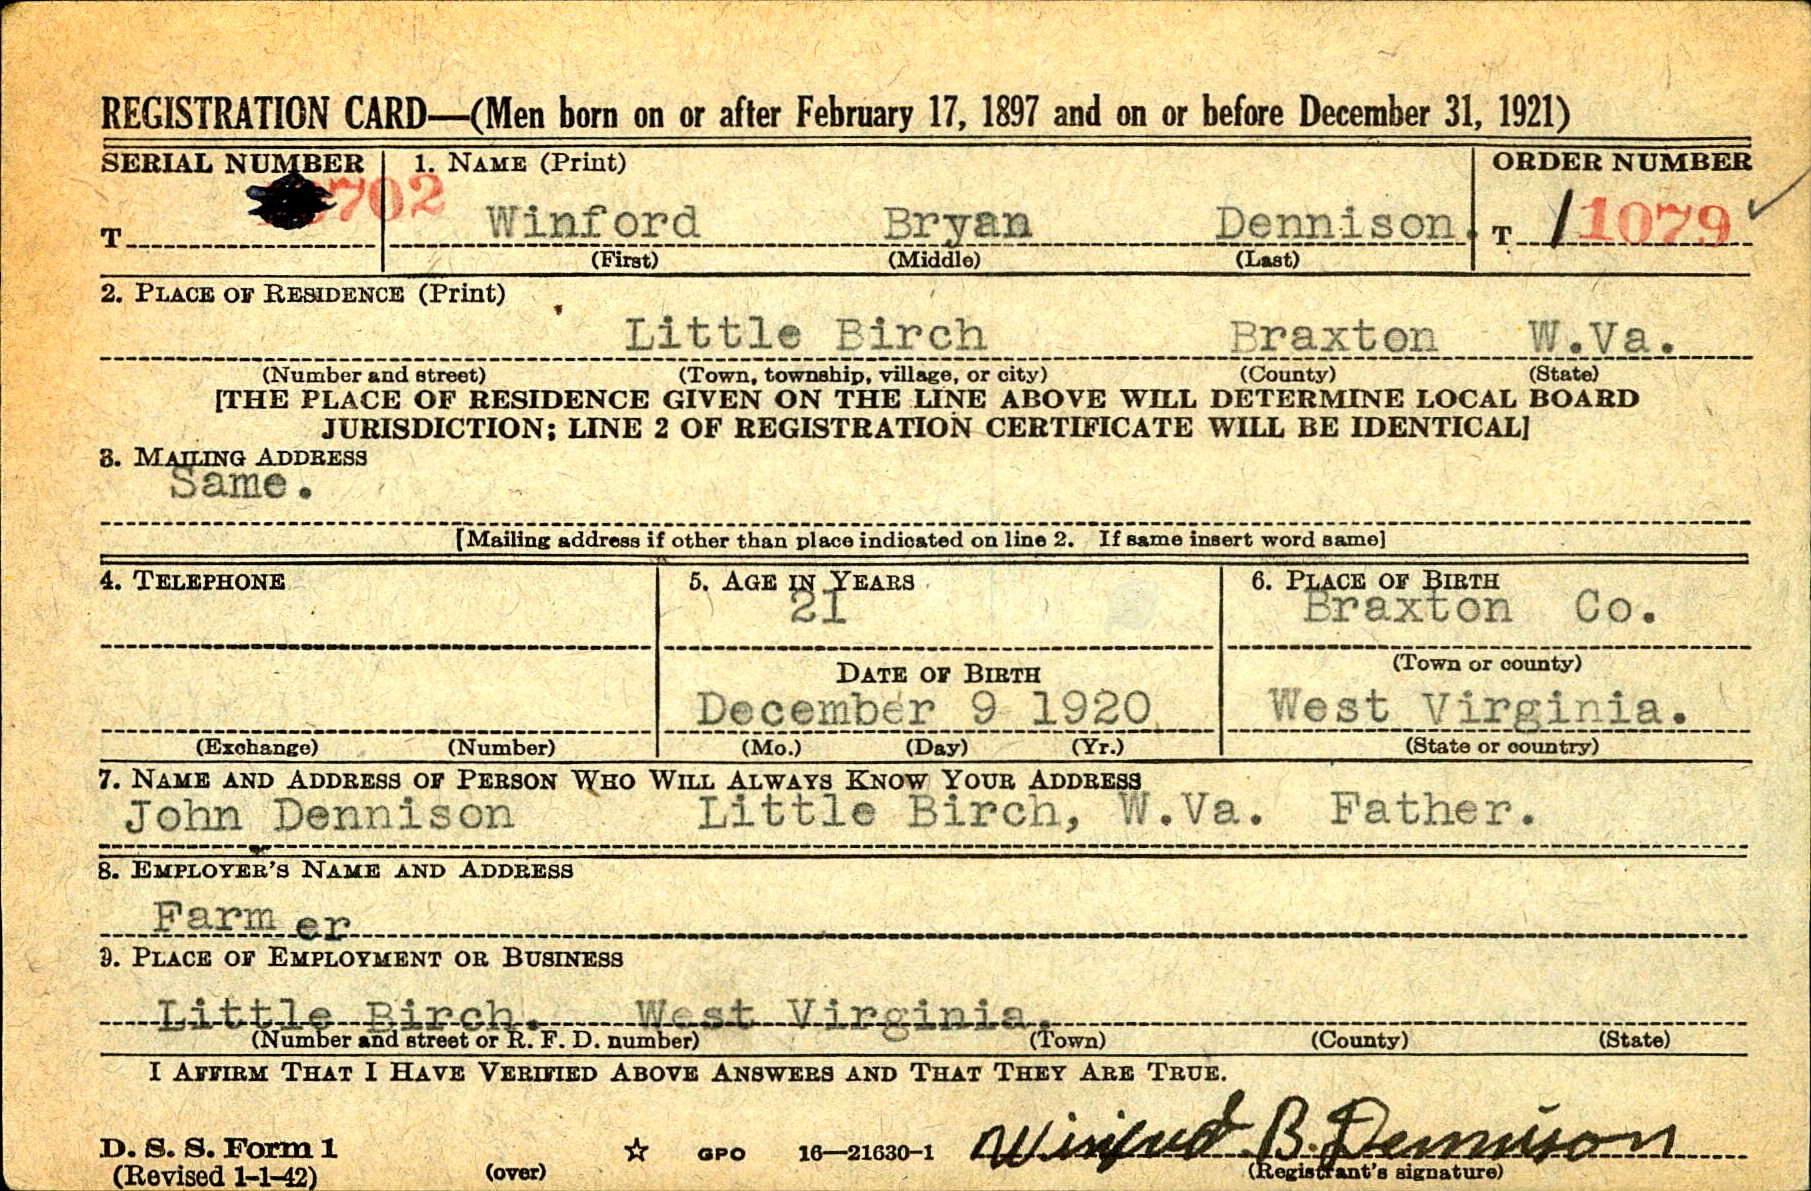 REGISTRATION CARD—(Men born on or after February 17, 1897 and on or before December 31, 1921)
SERIAL NUMBER 1. NAME (Print) ORDER NUMBER
T 702 Winford Bryan Dennison. T 11079
(First) (Middle) (Last)
2. PLACE OF RESIDENCE (Print)
Little Birch Braxton W.Va.
(Number and street) (Town, township, village, or city) (County) (State)
[THE PLACE OF RESIDENCE GIVEN ON THE LINE ABOVE WILL DETERMINE LOCAL BOARD
JURISDICTION; LINE 2 OF REGISTRATION CERTIFICATE WILL BE IDENTICAL]
3. MAILING ADDRESS
Same.
[Mailing address if other than place indicated on line 2. If same insert word same]
4. TELEPHONE 5. AGE IN YEARS 6. PLACE OF BIRTH
21 Braxton Co.
(Town or county)
DATE OF BIRTH
December 9 1920 West Virginia.
(Exchange) (Number) (Mo.) (Day) (Yr.) (State or country)
7. NAME AND ADDRESS OF PERSON WHO WILL ALWAYS KNOW YOUR ADDRESS
John Dennison Little Birch, W.Va. Father.
8. EMPLOYER'S NAME AND ADDRESS
Farm er
9. PLACE OF EMPLOYMENT OR BUSINESS
Little Birch. West Virginia.
(Number and street or R. F. D. number) (Town) (County) (State)
I AFFIRM THAT I HAVE VERIFIED ABOVE ANSWERS AND THAT THEY ARE TRUE.
D. S. S. Form 1 ☆ GPO 16—21630-1 Winford B. Dennison
(Revised 1-1-42) (over) (Registrant's signature)